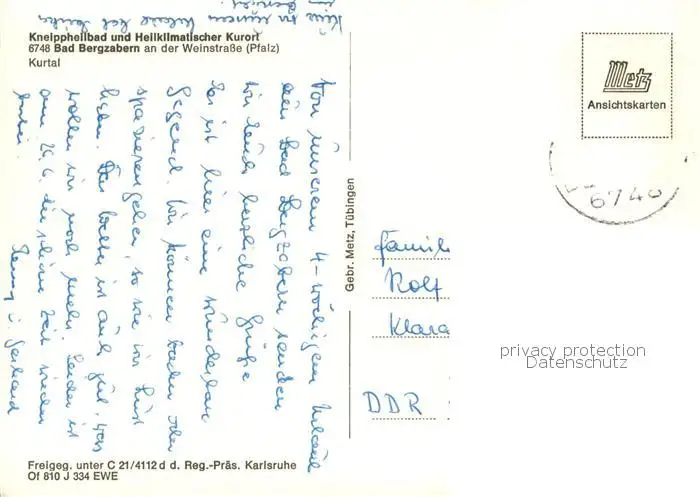 Kneippheilbad und Heilklimatischer Kurort
6748 Bad Bergzabern an der Weinstraße (Pfalz)
Kurtal
Von unserem 4-wöchigem Urlaub
aus Bad Bergzabern senden
wir Euch herzliche Grüße
Es ist hier eine wunderbare
Gegend. Wir können baden oder
spazierengehen, so wie wir Lust
haben. Das Wetter ist auch gut. was
wollen wir noch mehr. Leider ist
am 26.6. die schöne Zeit wieder
vorbei.
u. Gerhard
Gebr. Metz, Tübingen
Metz
Ansichtskarten
6740
Famili
Rolf
Klara
DDR
privacy protection
Datenschutz
Freigeg. unter C 21/4112 d d. Reg.-Präs. Karlsruhe
Of 810 J 334 EWE